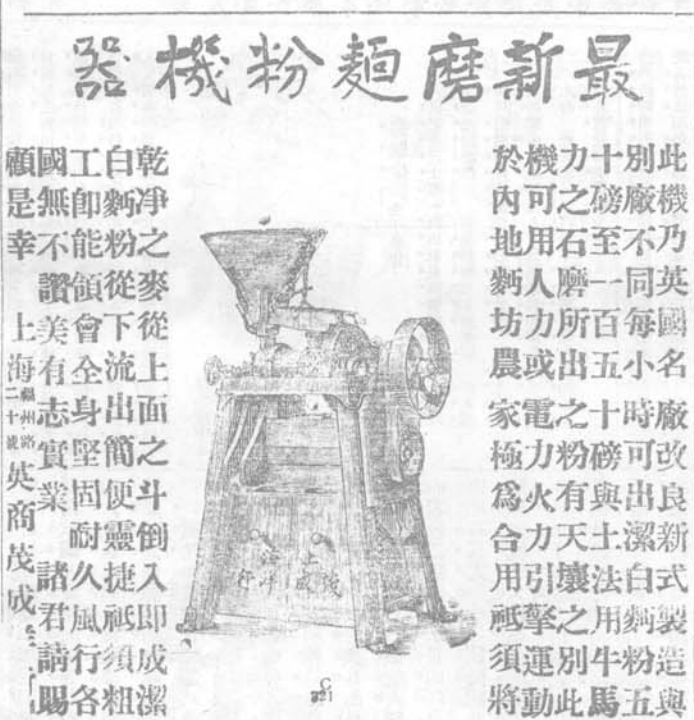 最新磨麵粉機器
此機乃英國名廠改良新式製造與
別廠不同每小時可出潔白麪粉五
十磅至一百五十磅與土法用牛馬
力之石磨所出之粉有天壤之別此
機可用人力或電力火力引擎運動
於內地麪坊農家極爲合用祗須將
乾凈之麥從上面之斗倒入即成潔
白麪粉從下流出簡便靈捷祗須粗
工卽能領會全身堅固耐久風行各
國無不讚美有志實業 諸君請賜
顧是幸 上海福州路二十號英商茂成
C